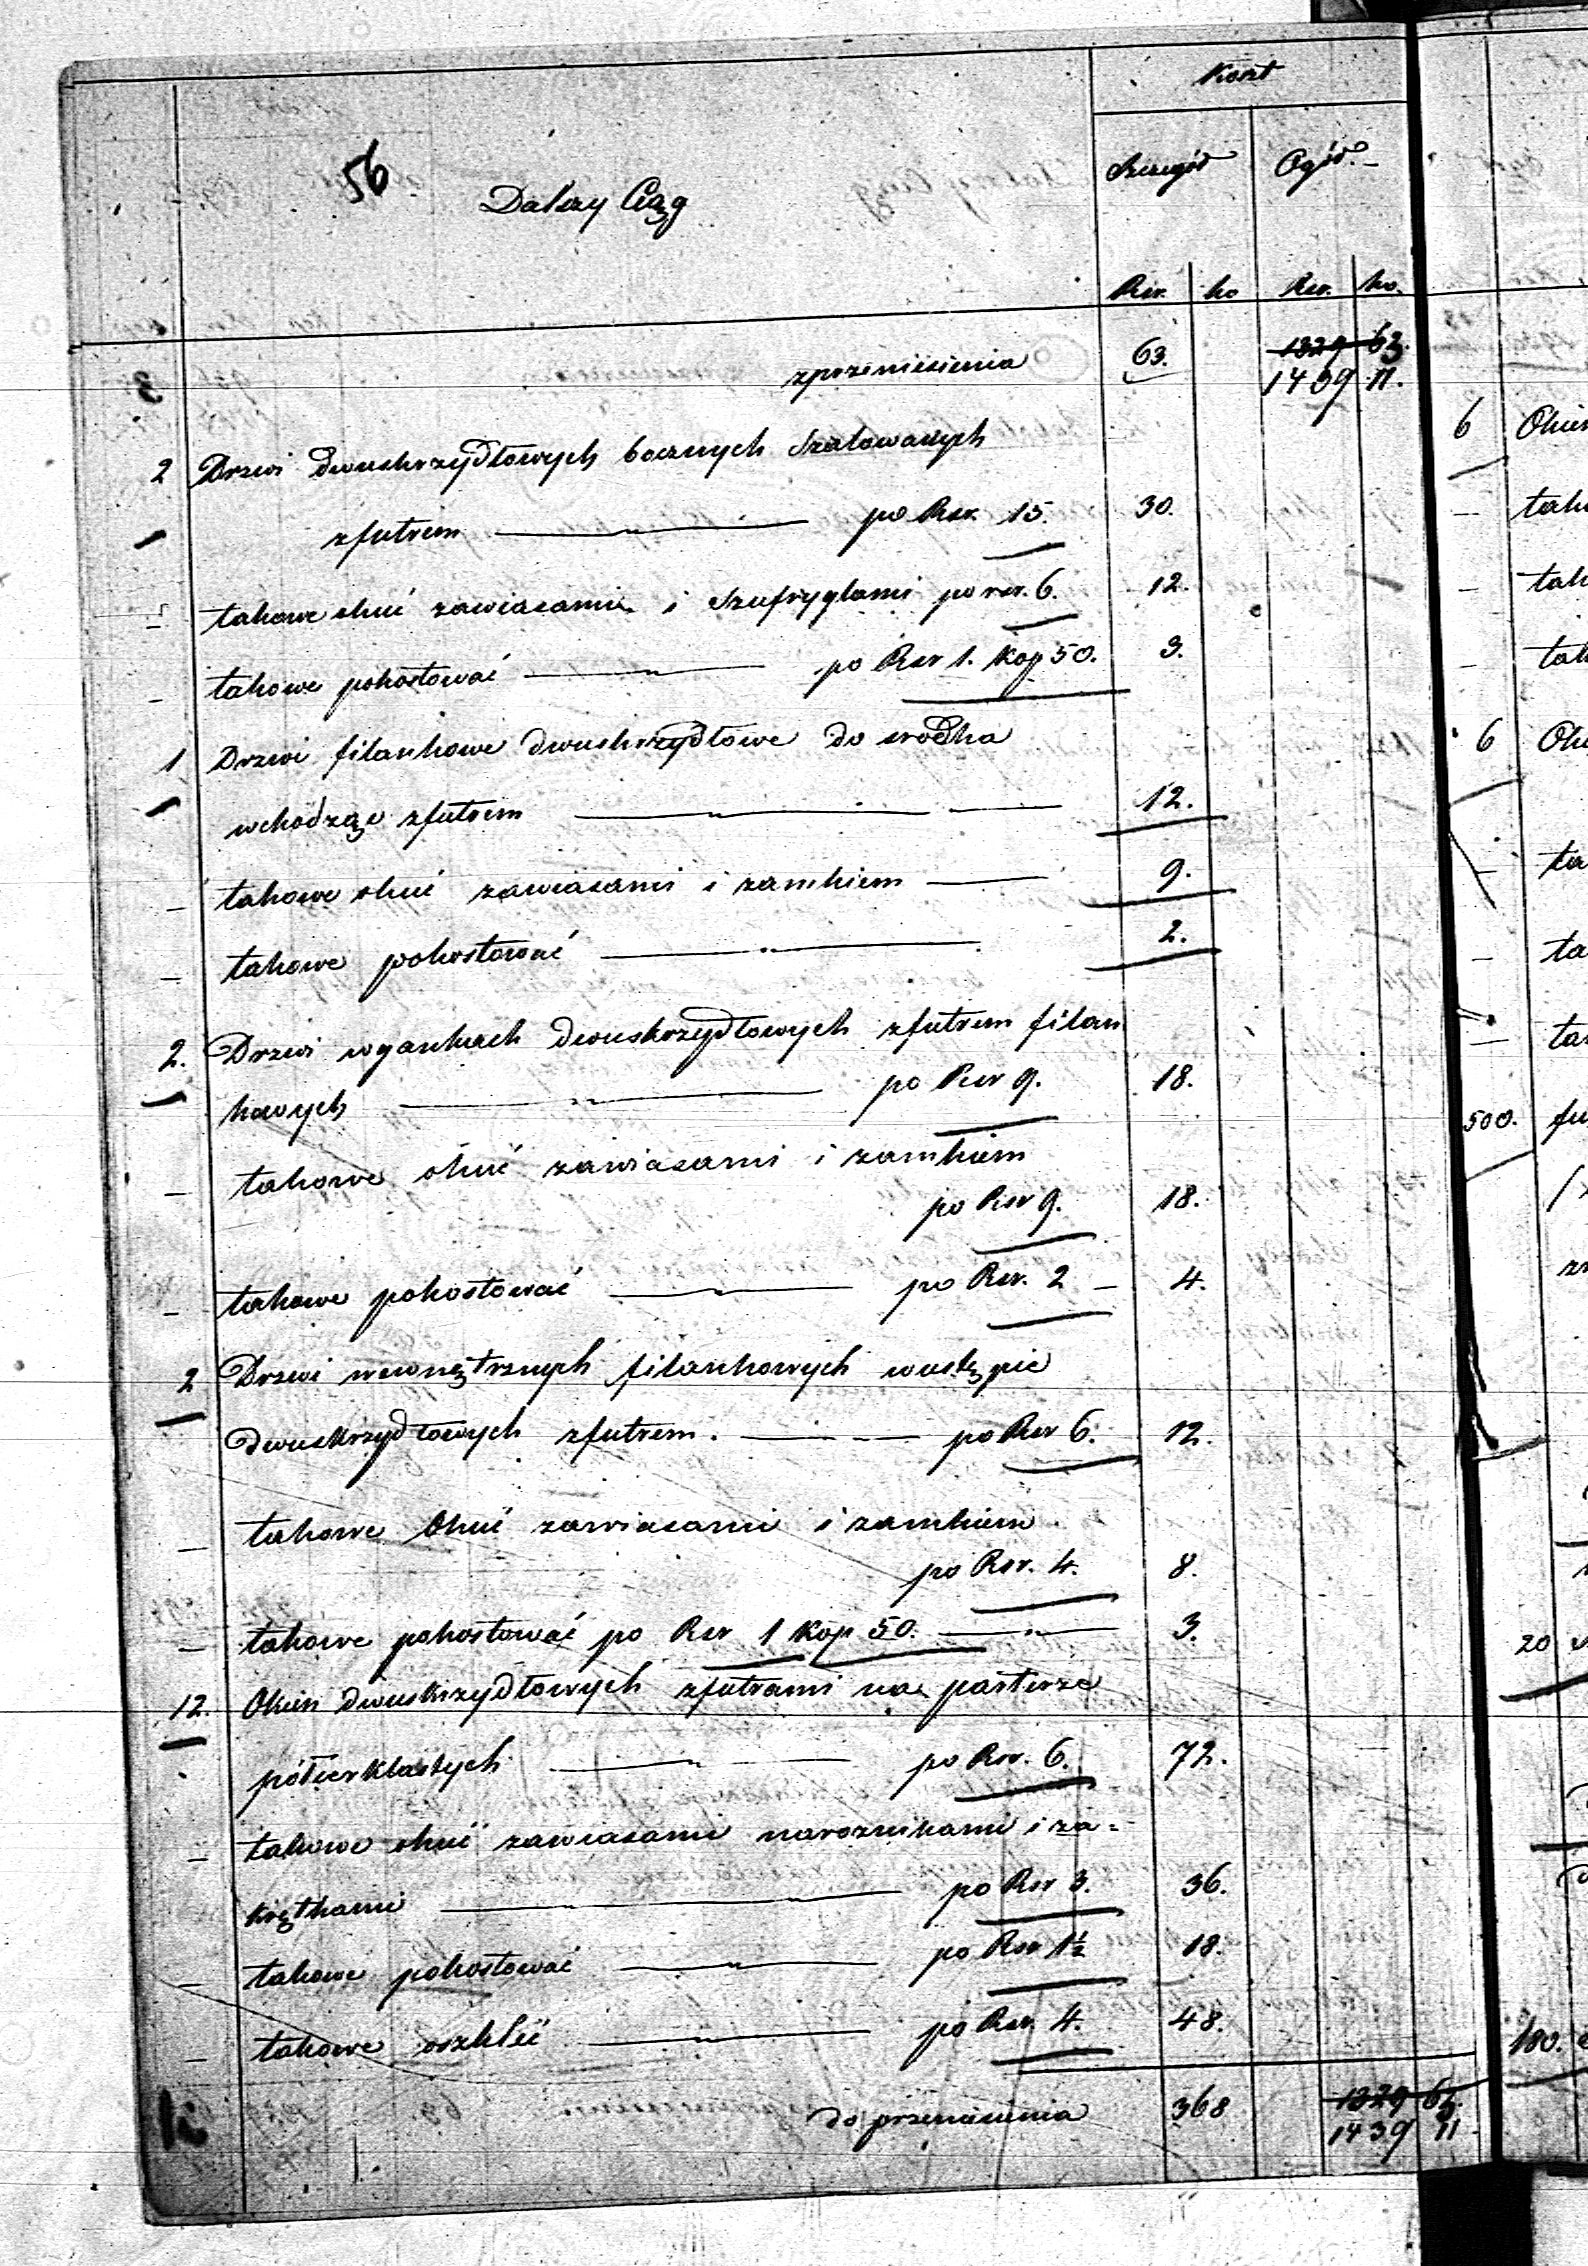 Koszt
56
Dalszy Ciąg
Szczegół Ogół.
Rsr. ko Rsr. ko.
zprzeniesienia 63. 1329 63.
1439 11.
2 Drzwi dwuskrzydłowych bocznych szalowanych
zfutrem po Rsr. 15. 30.
— takowe okuć zawiasami i Szufryglami po rsr. 6. 12.
— takowe pokostować po Rsr 1. Kop 50. 3.
1 Drzwi filankowe dwuskrzydłowe do srodka
wchodzące zfutrem 12.
— takowe okuć zawiasami i zamkiem 9.
— takowe pokostować 2.
2. Drzwi wgankach dwuskrzydłowych zfutrem filan
kowych po Rsr 9. 18.
— takowe okuć zawiasami i zamkiem
po Rsr 9. 18.
— takowe pokostować po Rsr. 2 — 4.
2 Drzwi wewnętrznych filankowych wustępie
dwuskrzydłowych zfutrem. po Rsr 6. 12.
— takowe Okuć zawiasami i zamkiem
po Rsr. 4. 8.
— takowe pokostować po Rsr 1 Kop 50. 3.
12. Okien dwuskrzydłowych zfutrami na parterze
półcerklastych po Rsr. 6. 72.
— takowe okuć zawiasami naroznikami i za=
krętkami po Rsr 3. 36.
— takowe pokostować po Rsr 1½ 18.
— takowe oszklić po Rsr. 4. 48.
do przeniesienia 368 1329 63.
1439 11
6
6
500.
20
180.